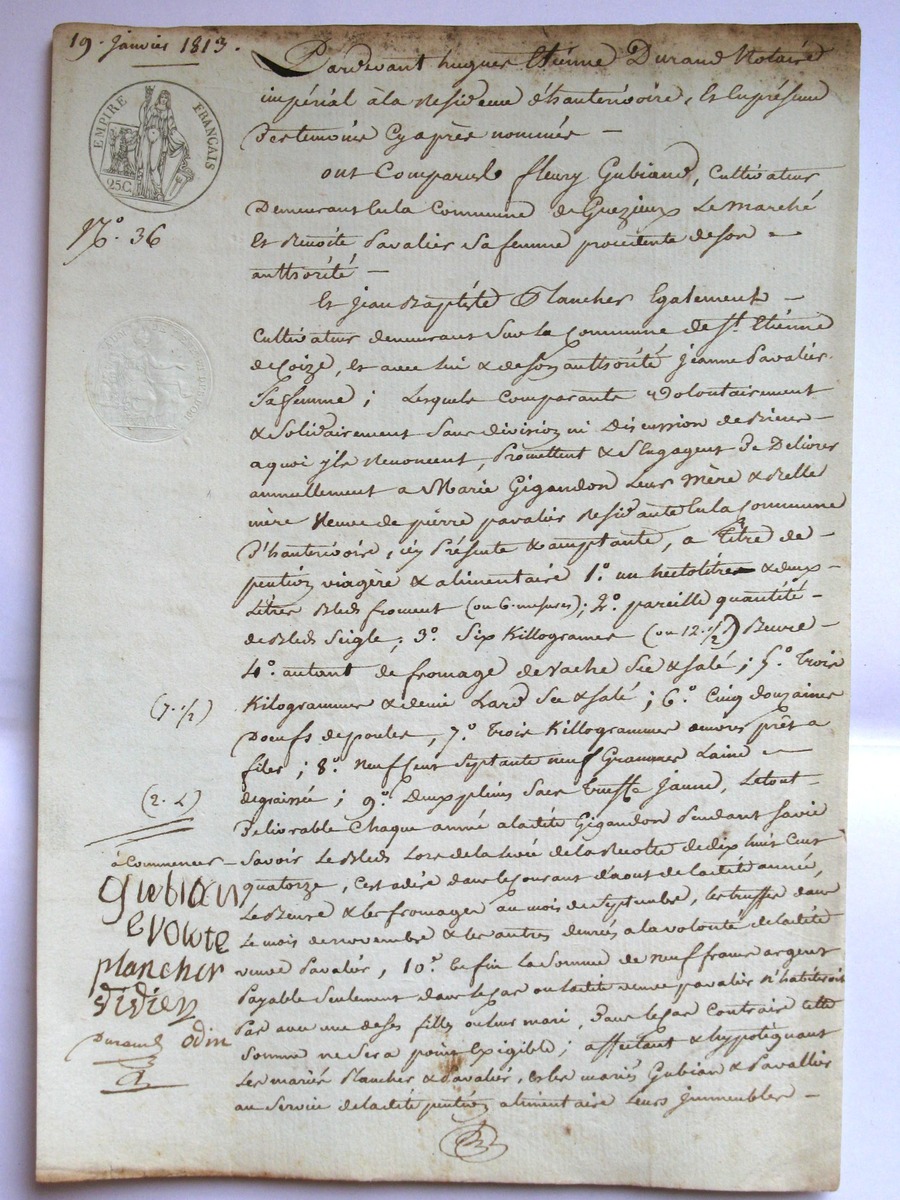 19. Janvier 1813.
EMPIRE FRANÇAIS
25C.
N.º 36
Pardevant hugues Etiénne Durand Notaire
impérial à la Residence d'hauterivoire, Et En présence
Des temoins Cy après nommés —
ont Comparu fleury Gubiand, Cultivateur
Demeurant En la Commune de Grezieux Le Marché
Et Benoite Pavalier Sa femme procédente de Son
authorité —
Et Jean Baptiste Plancher Egalement —
Cultivateur demeurant Sur la Commune de St. Etiénne
de Coize, Et avec lui & de Son authorité Jeanne Pavalier
Sa femme ; Lesquels Comparants volontairement
& Solidairement Sans division ni Discussion de Biens —
a quoi yls Renoncent, Promettent & S'Engagent De Delivrer
annuellement a Marie Gigandon Leurs Mère & Belle
mère Veuve de pierre pavalier Residante En la Commune
D'hauterivoire, icy Présente & acceptante, a Titre de —
pention viagère & alimentaire 1.º un hectolitre & deux —
Litres Bled froment (ou 6. mesures) ; 2.º pareille quantité —
de Bled Seigle ; 3.º Six Killogrames (ou 12. 1/2) Beurre —
4.º autant de fromage de vache Sec & Salé ; 5.º Trois
(7. 1/2)
Kilogrammes & demie Lard Sec & Salé ; 6.º Cinq douzaines
Doeufs de poules, 7.º Trois Killogrammes œuvres prêt a
filer ; 8.º Neuf Cent Septante neuf Grammes Laine —
(2. L)
degraissée ; 9.º Deux pleins Sacs Truffe Jaune, Le tout
Delivrable Chaque année a ladite Gigandon Pendant Sa vie
à Commencer —
Savoir Le Bled Lors de la levée de la Recolte de dix huit Cent
quatorze, C'est adire dans le Courant d'aout de ladite année,
Le Beurre & les fromages au mois de Septembre, les truffes dans
Le mois de novembre & les autres denrées a la volonté de ladite
veuve Pavalier, 10.º Enfin La Somme de neuf francs argent
Payable Seulement dans le Cas ou ladite veuve pavalier n'habiteroit
Pas avec une de Ses filles ou leur mari, Dans le Cas Contraire Cette
Somme ne Sera point Exigible ; affectant & hypotéquant
Les mariés Plancher & Pavalier, & les mariés Gubian & Pavallier
au Service de la dite pention alimentaire Leurs Immeubles —
Guebian
e volote
plancher
didier
Durand odin